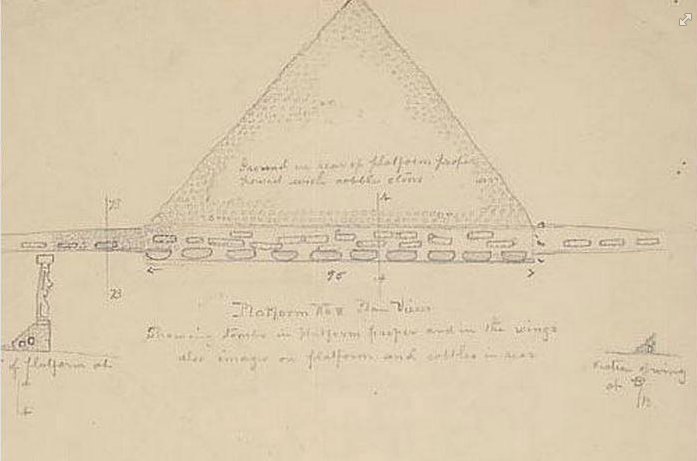 Ground in rear of platform proper
paved with cobble stone
A
B
B
96
Platform No II Plan View
Showing tombs in platform proper and in the wings
also images on platform and cobbles in rear
of platform at
Section of wing
at B
B